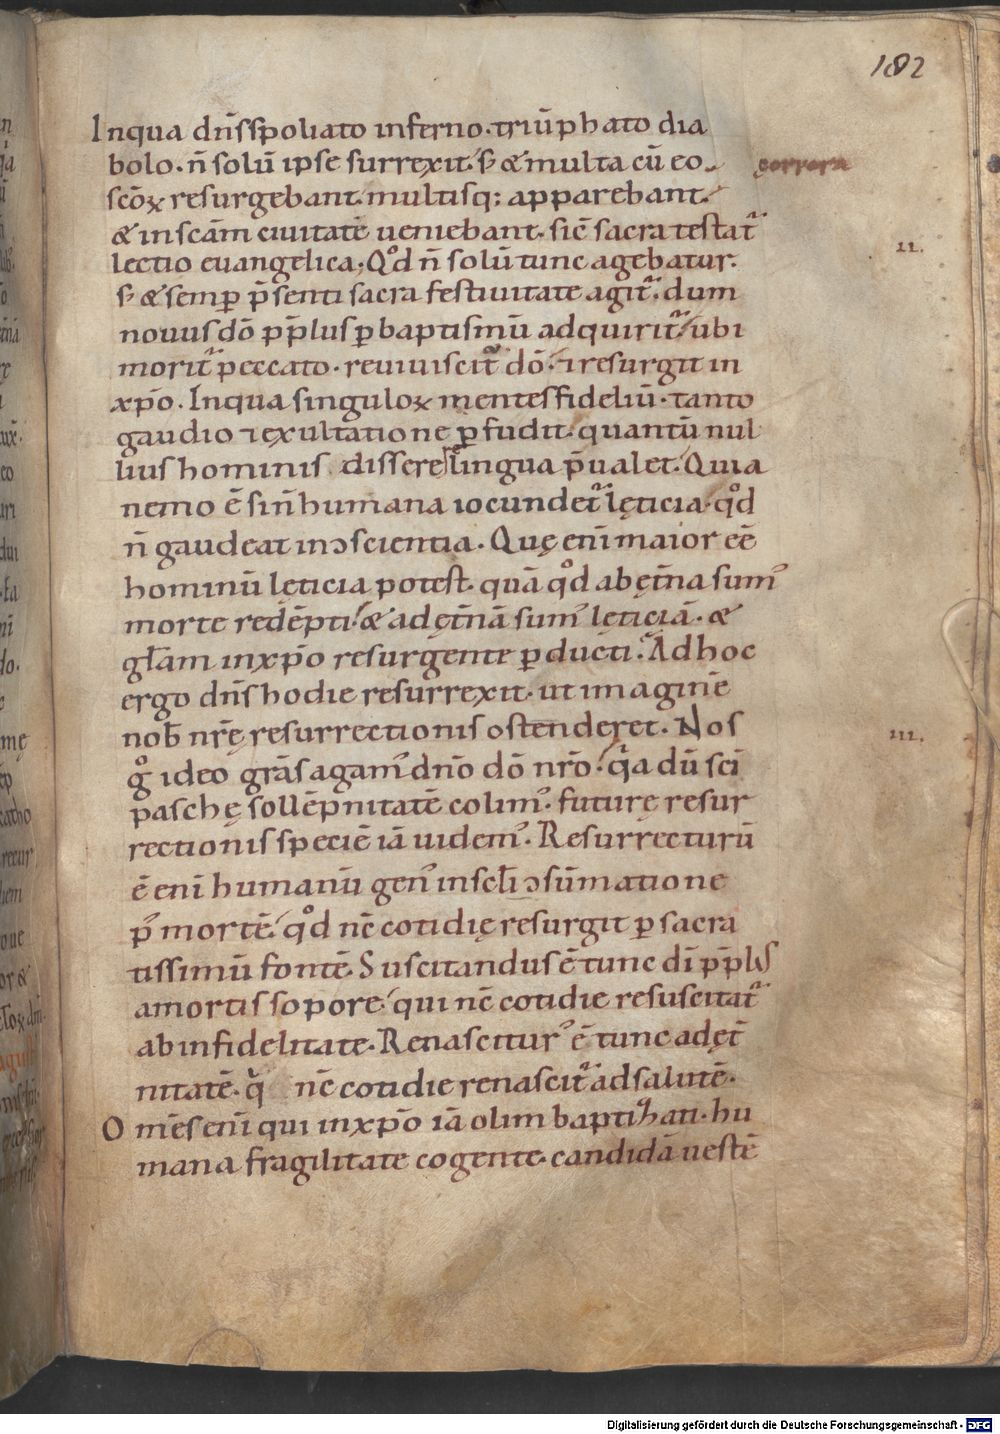 182
Inqua dn̄s spoliato inferno. triūphato dia
bolo. n̄ solū ipse surrexit. s; & multa cū eo corpora
scōꝝ resurgebant. multisq; apparebant.
& in scām ciuitatē ueniebant. sic̄ sacra testat᷑
11.
lectio euangelica. Qd̊ n̄ solū tunc agebatur.
s; & semꝑ p̄senti sacra festiuitate agit᷑. dum
nouus dō pp̄lus ꝑ baptismū adquirit᷑. ubi
morit᷑ peccato. reuiuiscit᷑ dō. ⁊ resurgit in
xp̄o. Inqua singuloꝝ mentes fideliū. tanto
gaudio ⁊ exultatione ꝑfudit. quantū nul
lius hominis disserere lingua p̄ualet. Quia
nemo ē sin̄ humana iocundet᷑ lęticia. qd̊
n̄ gaudeat in ɔscientia. Quę eni̅ maior eē
hominū lęticia potest. quā qd̊ ab ęt̄na sum᷒
morte redēpti. & ad ęt̄nā sum᷒ lęticiā. &
gl̄am in xp̄o resurgente ꝑducti. Ad hoc
ergo dn̄s hodie resurrexit. ut imaginē
nob̄ nr̄ę resurrectionis ostenderet. Nos
111.
g̊ ideo grās agam᷒ dn̄o dō nr̄o. q̄a dū sci̅
paschę sollēpnitatē colim᷒. futurę resur
rectionis speciē iā uidem᷒. Resurrecturū
ē eni̅ humanū gen᷒ in scl̄i ɔsūmatione
p᷒ mortē. qd̊ nc̄ cotidię resurgit ꝑ sacra
tissimū fontē. Suscitandus ē tunc di̅ pp̄ls
a mortis sopore. qui nc̄ cotidie resuscitat᷑
ab infidelitate. Renasciturus ē tunc ad ęt̄
nitatē. q̄ nc̄ cotidie renascit᷑ ad salutē.
Om̄s eni̅ qui in xp̄o iā olim baptizati. hu
mana fragilitate cogente. candidā uestē
Digitalisierung gefördert durch die Deutsche Forschungsgemeinschaft - DFG